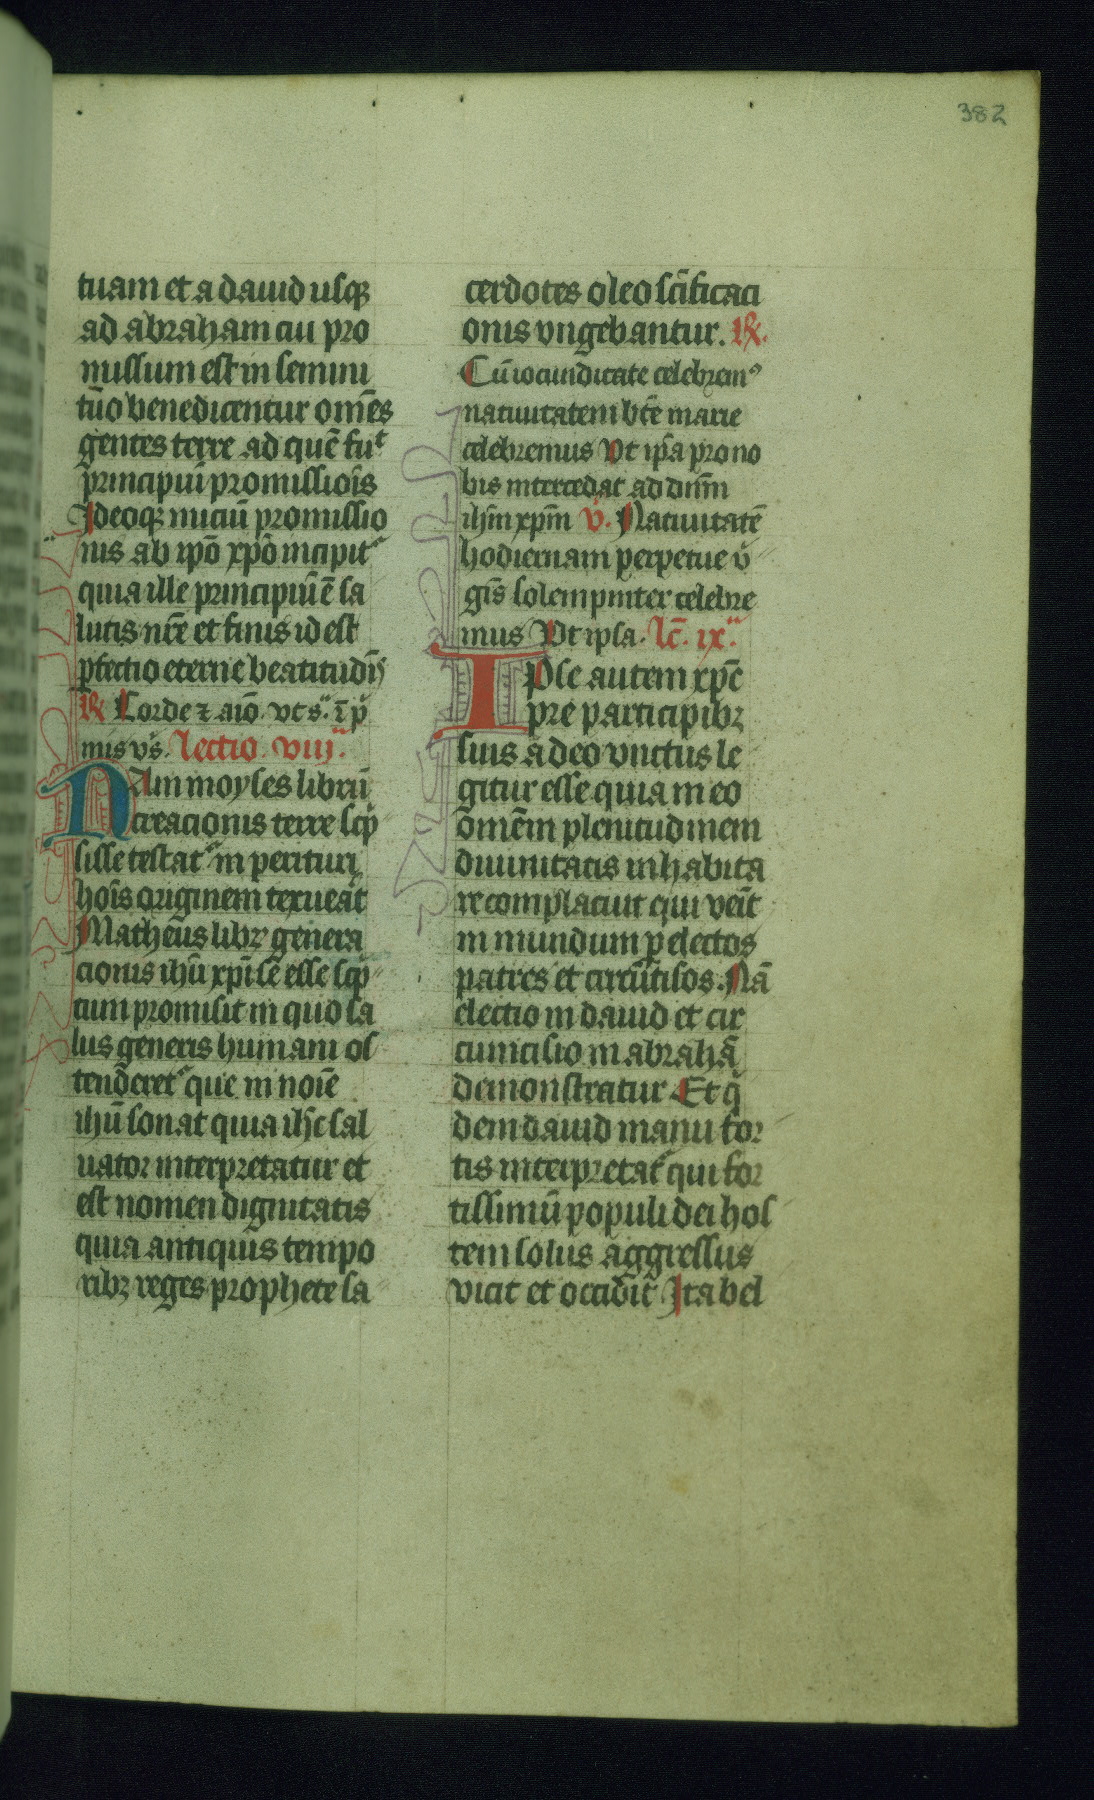 382
tuam et a dauid usq3
ad abraham cui pro
missum est in semini
tuo benedicentur om̄es
gentes terre ad quē fuͭ
principuī promissiois̄
Ideoq3 niciū promissio
nis ab ipō xpō incipit᷑
quia ille principiū ē sa
lutis nr̄e et finis id est
ꝑfectio eterne beatitudīs
℟ Corde ⁊ aīo. vt s᷑. ī p̄
mis vs̄. lectio. viij᷑.
Nam moyses librū
creacionis terre scp̄
sisse testat᷑ in perituri
hoīs originem texueāt
Matheus libr᷑ genera
cionis ihū xpī sē esse scp̄
tum promisit in quo sa
lus generis humani os
tenderet᷑ que in noīe
ihū sonat quia ihc̄ sal
uator interpretatur et
est nomen dignitatis
quia antiquis tempo
rib3 reges prophete sa
cerdotes oleo scīficaci
onis vngebantur. ℟.
Cū iocundicate celebremꝰ
natiuitatem bt̄e marie
celebremus Vt ip̄a pro no
bis intercedat ad dn̄m
ihm̄ xpm̄ v̄. Natiuitatē
hodiernam perpetue v̄
gīs solempniter celebre
mus Vt ipsa. lc̄. ix᷑.
IPse autem xpc̄
pre participib3
suis a deo vnctus le
gitur esse quia in eo
omēm plenitudinem
diuinitatis inhabita
re complacuit qui veīt
in mundum ꝑ electos
patres et circūcisos. Nā
electio in dauid et cir
cumcisio in abrahā
demonstratur. Et q̄
dem dauid manu for
tis interpretat᷑ qui for
tissimū populi dei hos
tem solus aggressus
vicit et occidit Ita bel